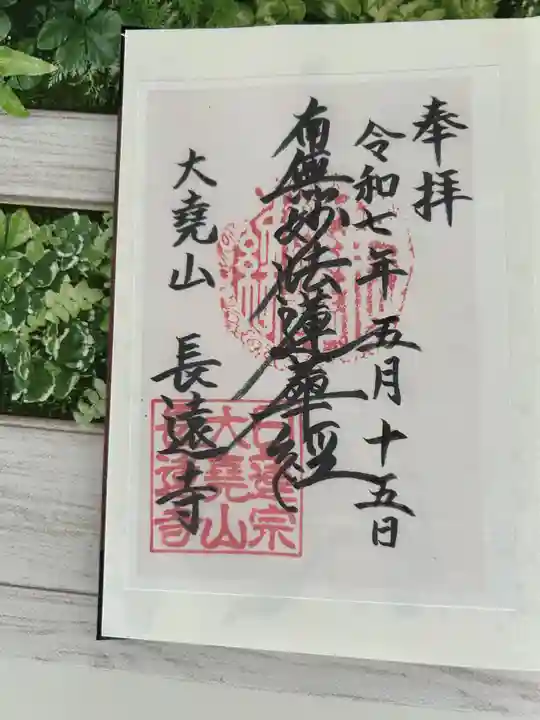 奉拝
令和七年 五月十五日
南無妙法蓮華経
大堯山 長遠寺
日蓮宗
大堯山
長遠寺